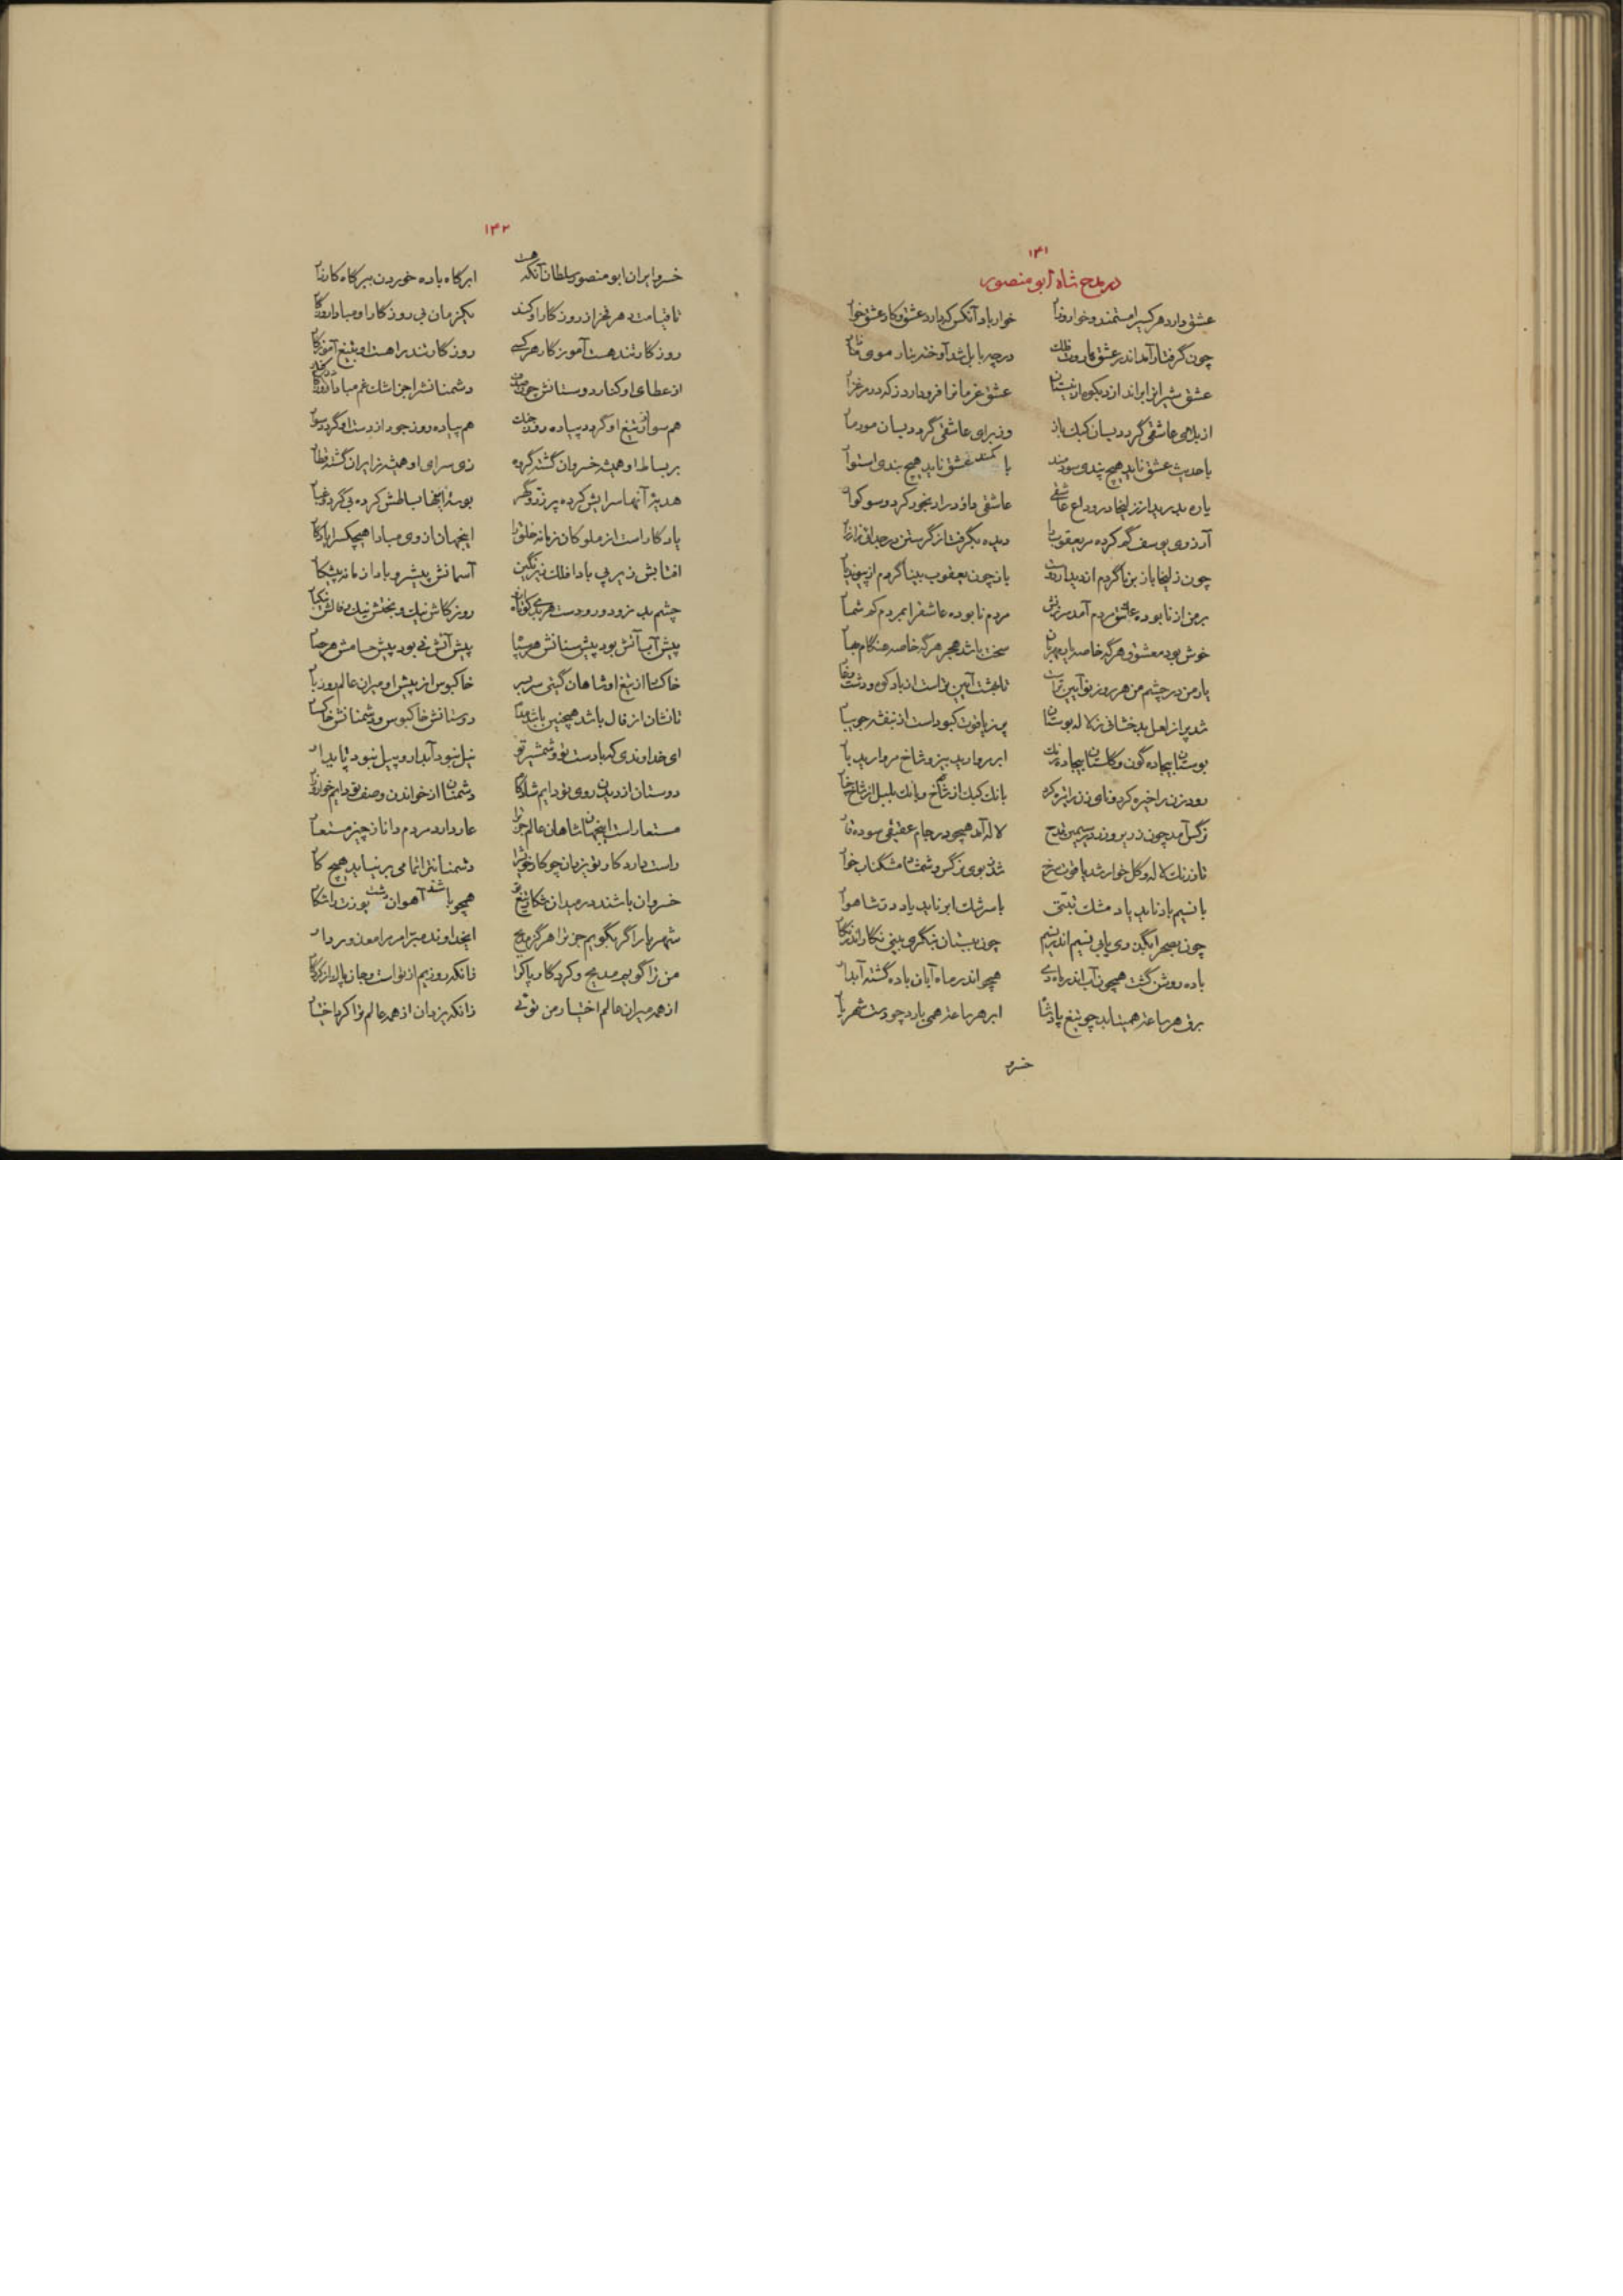 ۱۳۱
در مدح شاه ابو منصور
عشق دارد هر کسیرا مستمند و خوار وزار خوار باد آنکس که دارد عشق و کار عشق خوار
چون گرفتار آمد اندر عشق ماروت فلک در چه بابل شد آوخته بتار موی مار
عشق شیرانرا براند از که بکوه از نیستان عشق غرمانرا فرود آرد ز که در مرغزار
از بلای عاشقی گردد بسان کبک باز وز برای عاشقی گردد بسان مور مار
با حدیث عشق ناید هیچ پندی سودمند با کمند عشق ناید هیچ بندی استوار
پاره بدرید از زلیخا در وداع عاشقی عاشقی داود را رنجور کرد و سوکوار
آرزوی یوسف گم کرده مر یعقوب را دیده بگرفت از گرستن در جدائی زار زار
چون زلیخا باز برنا گردم از دیدار دوست باز چون یعقوب بینا گردم از پیوند یار
بر من از نابوده عاشق مردم آمد سرزنش مردم نابوده عاشقرا بمردم کم شمار
خوش بود معشوق هرگه خاصه با پیمهر یار سخت باشد هجر هرگه خاصه هنگام بهار
یار من در چشم من هر روز نو آیین تر است تا بهشت آیین تر است از باد کوه و دشت و غار
شد پر از لعل بدخشانی ز لاله بوستان پر ز یاقوت کبود است از بنفشه جویبار
بوستان بیجاده گون و گلستان بیجاده رنگ ابر مروارید بیز و شاخ مروارید بار
رود زن را خیره کرد و نای زن را تیره کرد بانک کبک از شخ و بانک بلبل از شاخ خیار
نرگس آمد چون زر بر روزنه سیمین قدح لاله آمد همچو در جام عقیقی سوده قار
تا ز رنگ لاله و گل خوار شد یاقوت سرخ شد ز بوی نرگس و شمشاد مشک ناب خوار
با نسیم باد ناید یاد مشک تبتی با سرشک ابر ناید یاد در شاهوار
چون بصحرا بگذری یابی نسیم اندر نسیم چون ببستان بنگری بینی نگار اندر نگار
باده روشن گشت همچون آب اندر ماه دی همچو اندر ماه آبان باده گشته آبدار
برق هر ساعت همی تابد چو تیغ پادشا ابر هر ساعت همی بارد چو دست شهریار
خسرو
۱۳۲
خسرو ایران ابو منصور سلطان آنکه هست ابر گاه باده خوردن ببر گاه کارزار
تا قیامت دهر فخر از روزگار او کند یکزمان بی روزگار او مباد روزگار
روزگار تند هست آموزگار هر کسی روزگار تند را هست او بتیغ آموزگار
از عطای او کنار دوستانش چون صدف دشمنانشرا جز اشک غم مباد در کنار
هم سوار از تیغ او گردد پیاده روز جنگ هم پیاده روز جود از دست او گردد سوار
بر بساط او همیشه خسروان گشته گروه زی سرای او همیشه زایران گشته قطار
هدیه آنها سرایش کرده پر زر و گهر بوسه اینها بساطش کرده بی گرد و غبار
یادگار است از ملوکان زمانه خلق را اینجهان از وی مبادا هیچکسرا یادگار
افتابش زیر پی بادا فلک زیر نگین آسمانش پیشرو بادا زمانه پیشکار
چشم بد زو دور و دست هر بدی کوتاه روزگارش نیک و بختش نیک و فالش نیک
پیش آب آتش بود پیش سنانش هر سپاه پیش آتش نی بود پیش حسامش هر حصار
خاکسار از تیغ او شاهان گیتی سر بسر خاکبوس از پیش او میران عالم روز بار
تا نشان از فال باشد همچنین باشد مدام دوستانش خاکبوس و دشمنانش خاکسار
ای خداوندی که با دست تو و شمشیر تو نیل نبود آبدار و پیل نبود پایدار
دوستان از دیدن روی تو دایم شادکام دشمنان از خواندن وصف تو دایم خوار و زار
مستعار است اینجهان شاهان عالم جز ترا عار دارد مردم دانا ز چیز مستعار
راست دارد کار تو یزدان چو کار خویش را دشمنانترا تمامی بر نیاید هیچ کار
خسروان باشند در میدان شکار تیغ تو همچو باشند آهوان دشت یوزت را شکار
شهریارا گر بگویم جز ترا هرگز مدیح ایخداوند مبترا مر مرا معذور دار
من ترا گویم مدیح و کردگار پاک را زانکه روزیم از تو است و جان پاک از کردگار
از همه میران عالم اختیار من توئی زانکه یزدان از همه عالم ترا کرد اختیار